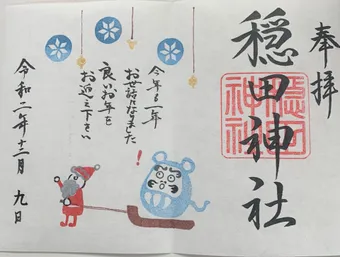 奉拝
穏田神社
穏田
神社
今年も一年
お世話になりました
良いお年を
お迎え下さい
!
令和二年十二月九日